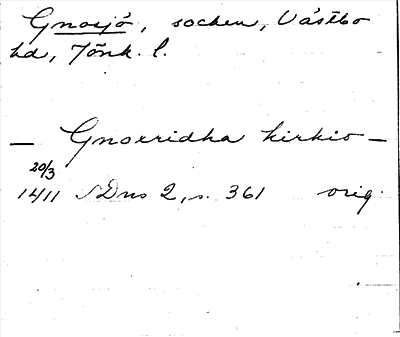 Gnosjö, socken, Västbo
hd, Jönk. l.
— Gnoxridha kirkio —
20/3
1411 SDns 2, s. 361 orig.